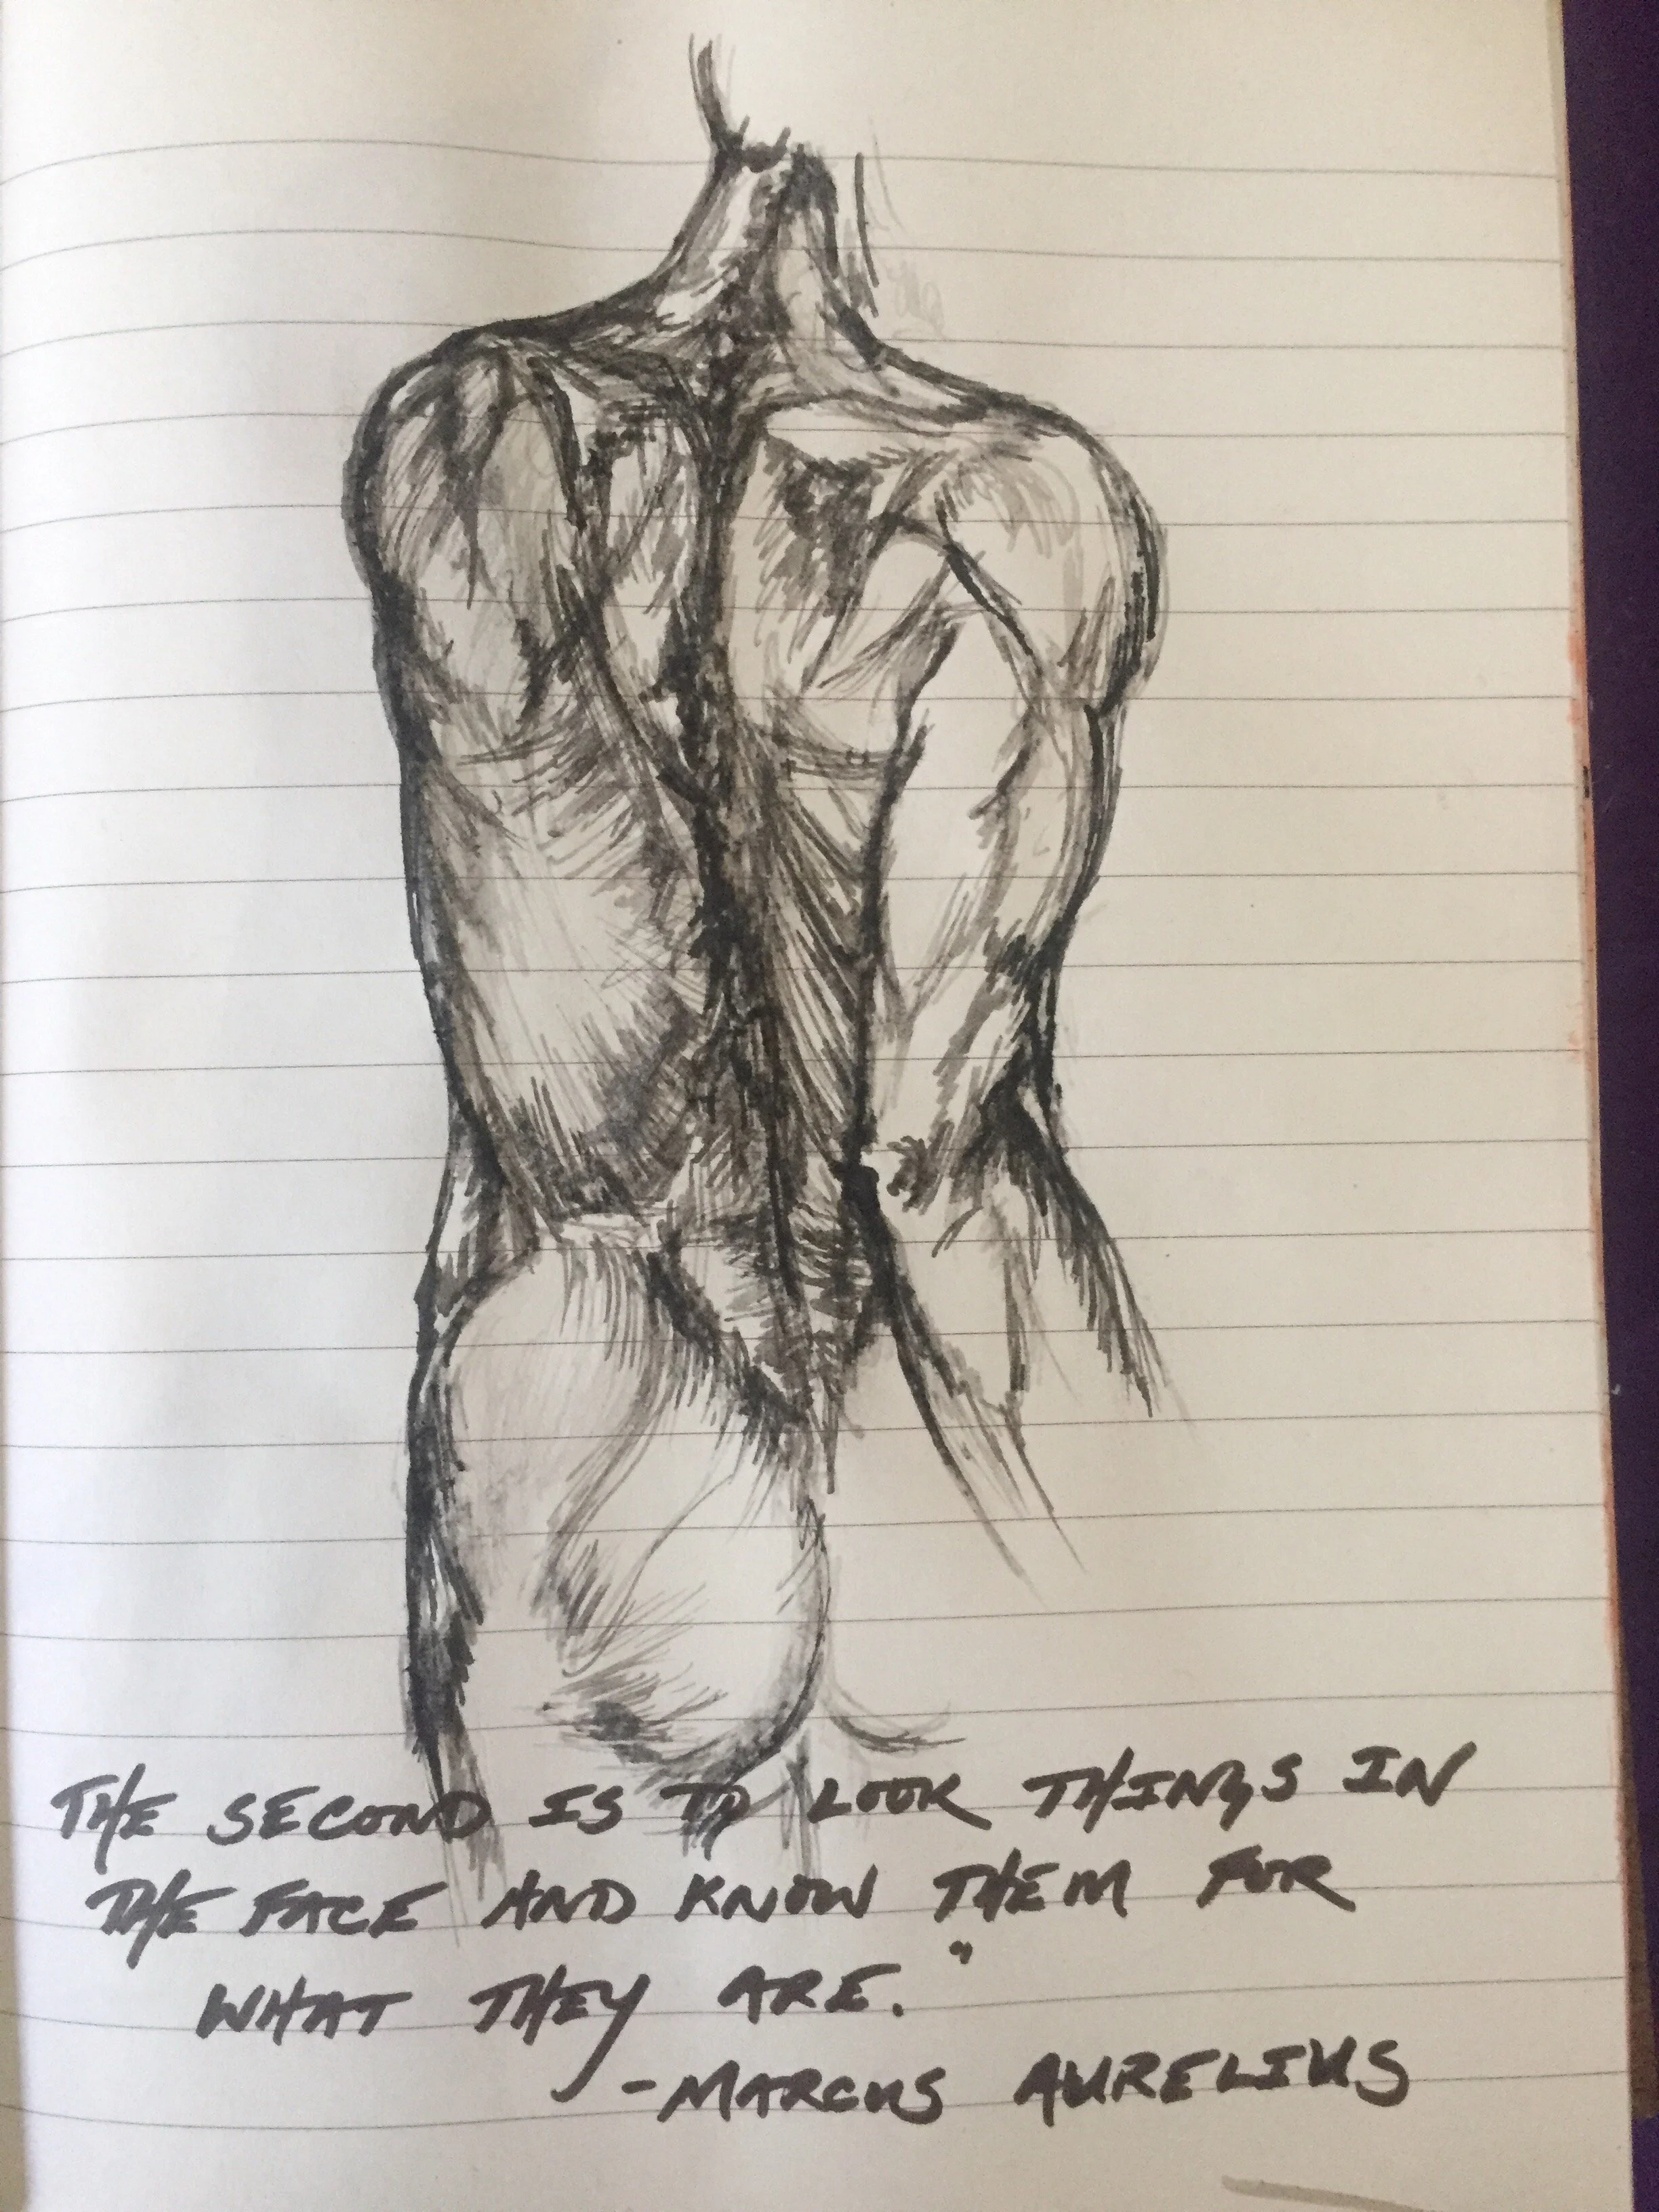 THE SECOND IS TO LOOK THINGS IN
THE FACE AND KNOW THEM FOR
WHAT THEY ARE."
-MARCUS AURELIUS